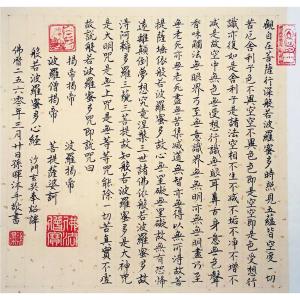 觀自在菩薩行深般若波羅蜜多時照見五蘊皆空度一切
苦厄舍利子色不異空空不異色色即是空空即是色受想行
識亦復如是舍利子是諸法空相不生不滅不垢不淨不增不
減是故空中无色无受想行識无眼耳鼻舌身意无色聲
香味觸法无眼界乃至无意識界无无明亦无无明盡乃至
无老死亦无老死盡无苦集滅道无智亦无得以无所得故菩
提薩埵依般若波羅蜜多故心无罣礙无罣礙故无有恐怖
遠離顛倒夢想究竟涅槃三世諸佛依般若波羅蜜多故
得阿耨多羅三藐三菩提故知般若波羅蜜多是大神咒
是大明咒是无上咒是无等等咒能除一切苦真實不虛
故說般若波羅蜜多咒即說咒曰
揭帝揭帝 波羅揭帝
波羅僧揭帝 菩提薩婆訶
般若波羅蜜多心經 沙門玄奘奉詔譯
佛曆二五六〇年三月廿日孫暉沐手敬書